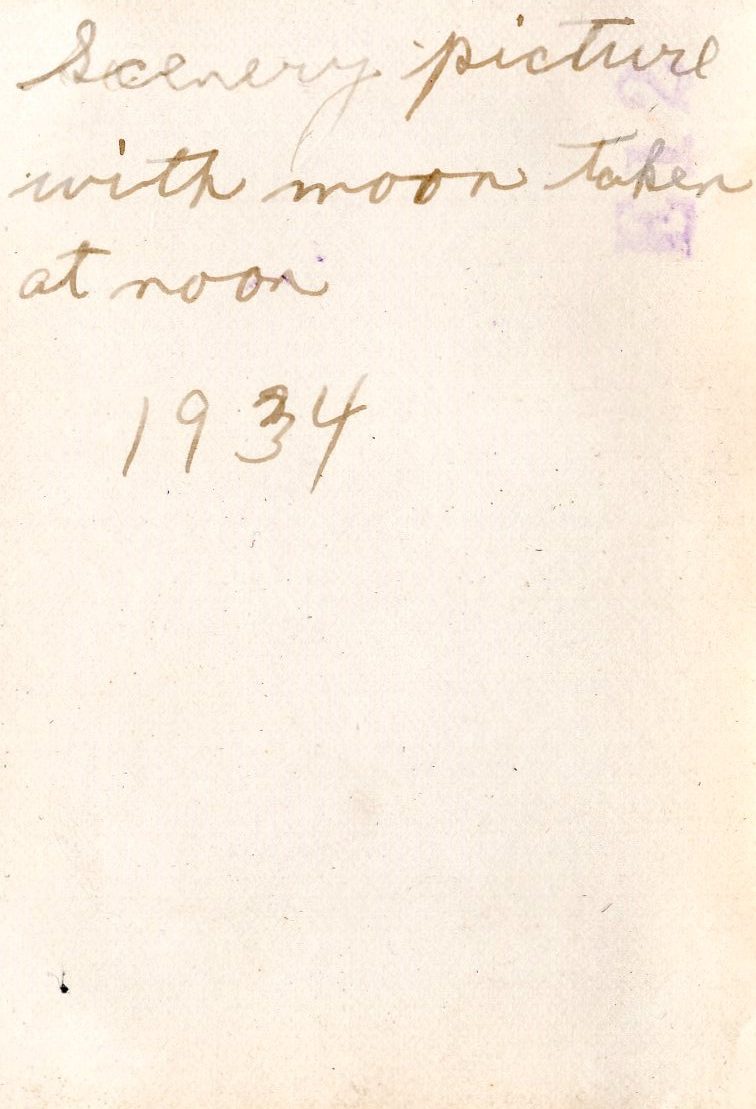 Scenery picture
with moon taken
at noon
1934